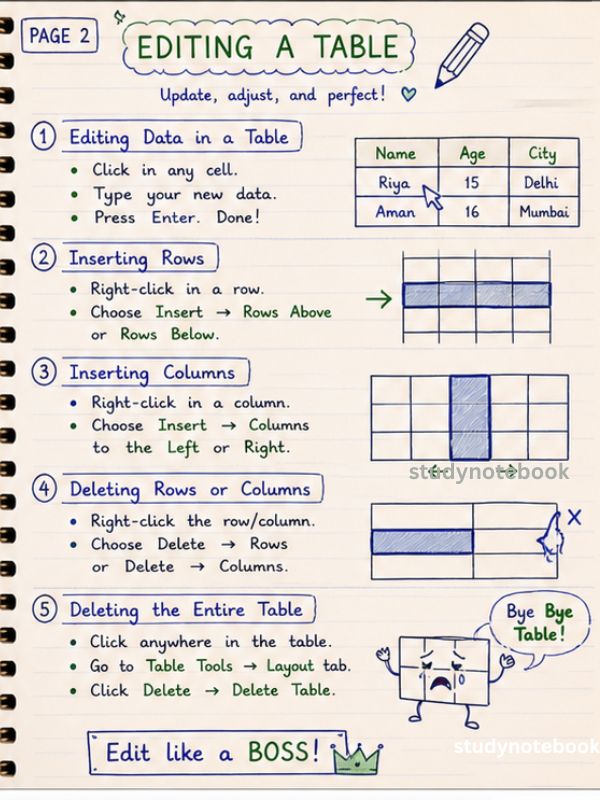 PAGE 2
EDITING A TABLE
Update, adjust, and perfect!
1 Editing Data in a Table
• Click in any cell.
• Type your new data.
• Press Enter. Done!
Name Age City
Riya 15 Delhi
Aman 16 Mumbai
2 Inserting Rows
• Right-click in a row.
• Choose Insert → Rows Above
or Rows Below.
→
3 Inserting Columns
• Right-click in a column.
• Choose Insert → Columns
to the Left or Right.
studynotebook
4 Deleting Rows or Columns
• Right-click the row/column.
• Choose Delete → Rows
or Delete → Columns.
X
5 Deleting the Entire Table
• Click anywhere in the table.
• Go to Table Tools → Layout tab.
• Click Delete → Delete Table.
Bye Bye
Table!
Edit like a BOSS!
studynotebook